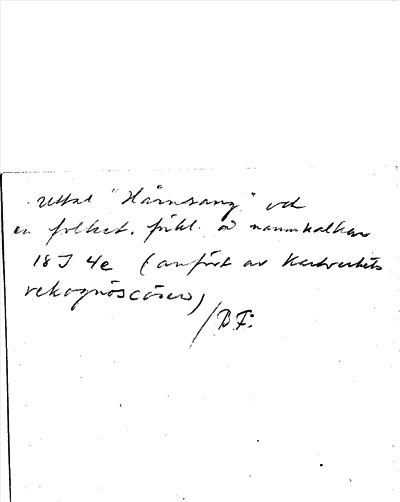 Uttal "Hårnsang" och
en folket. förkl. av namn kalkar
18 J 4e (anfört av Kartverkets
rekognoscörer)
/B F.